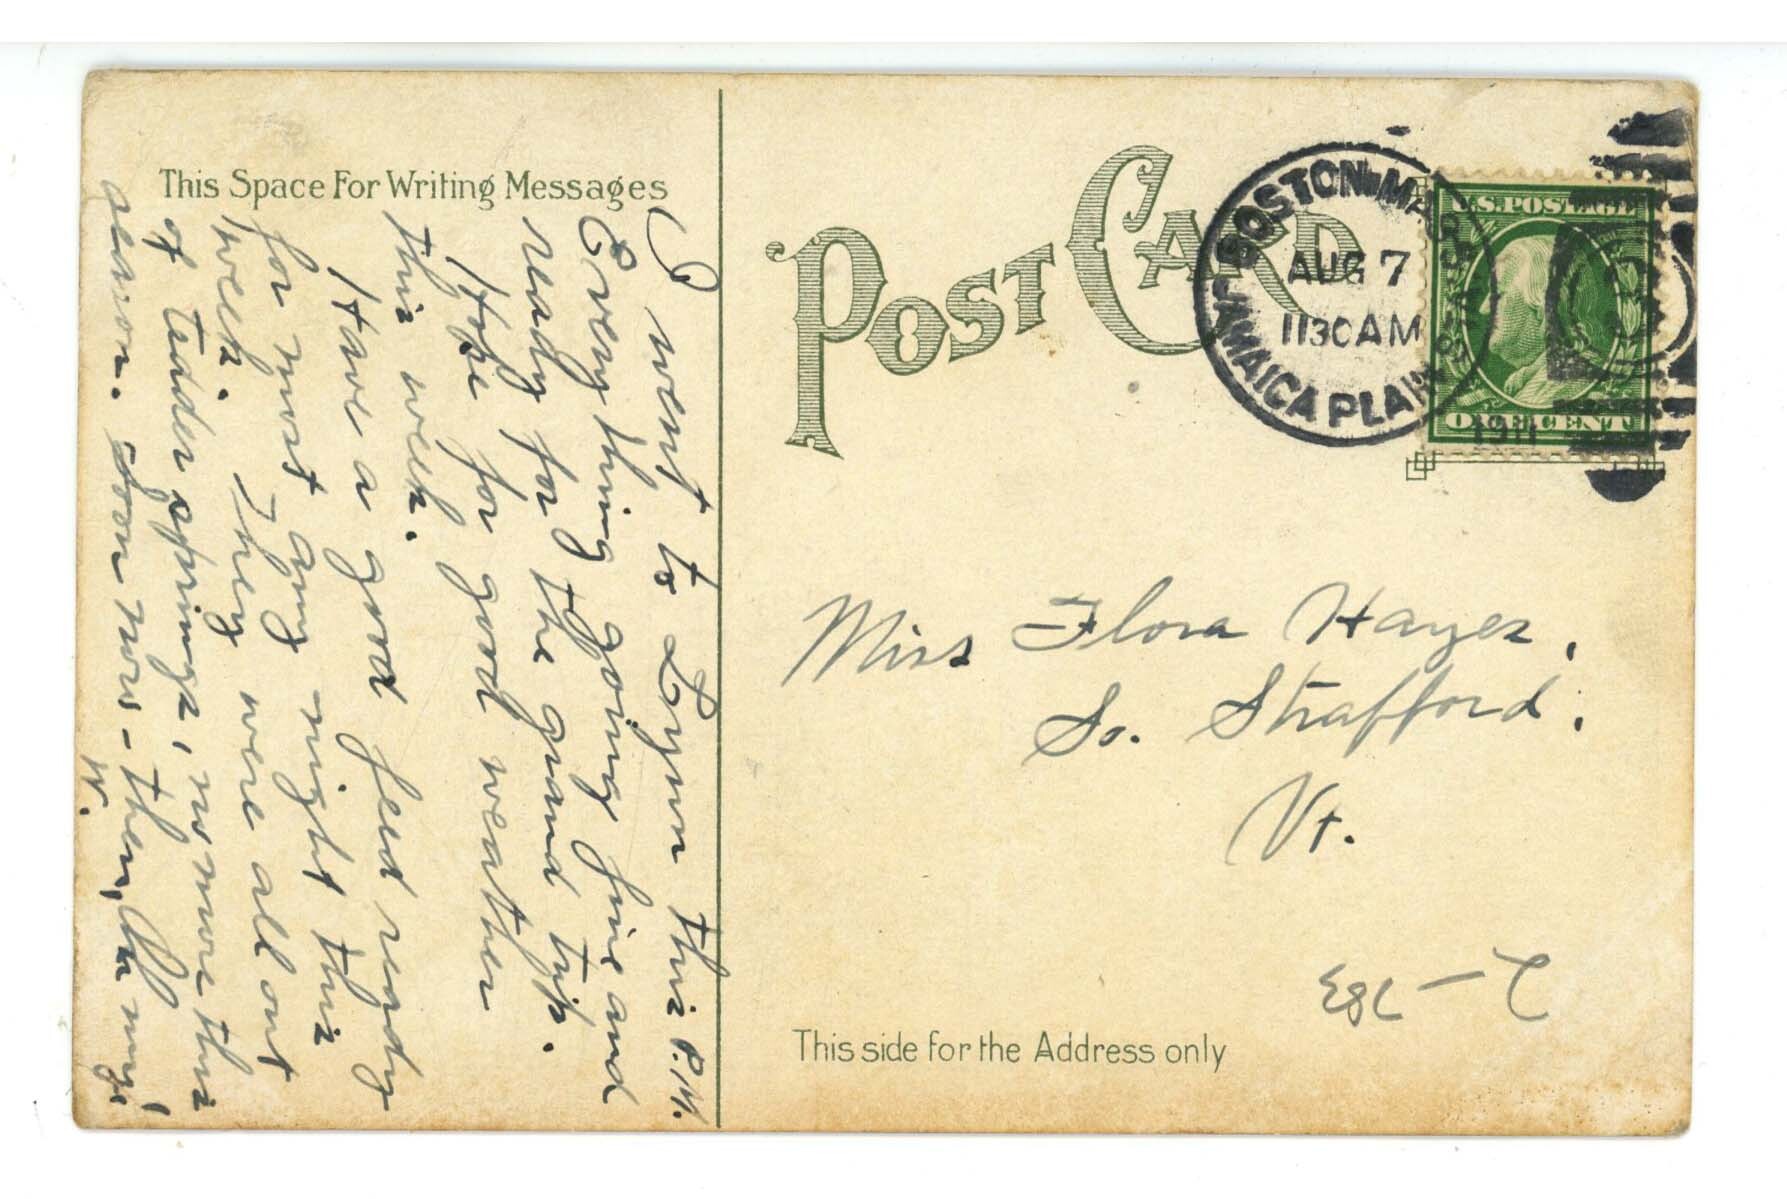 This Space For Writing Messages
I went to Lynn this P.M.
Everything going fine and
ready for the grand trip.
Hope for good weather
this week.
Have a good feed ready
for most any night this
week. They were all out
of tedder springs, no more this
season. Soon now - then, Oh my!
W.
POST CARD
BOSTON, MASS.
AUG 7
1130 AM
1911
JAMAICA PLAIN
U.S. POSTAGE
ONE CENT
Miss Flora Hayes,
So. Strafford,
Vt.
This side for the Address only